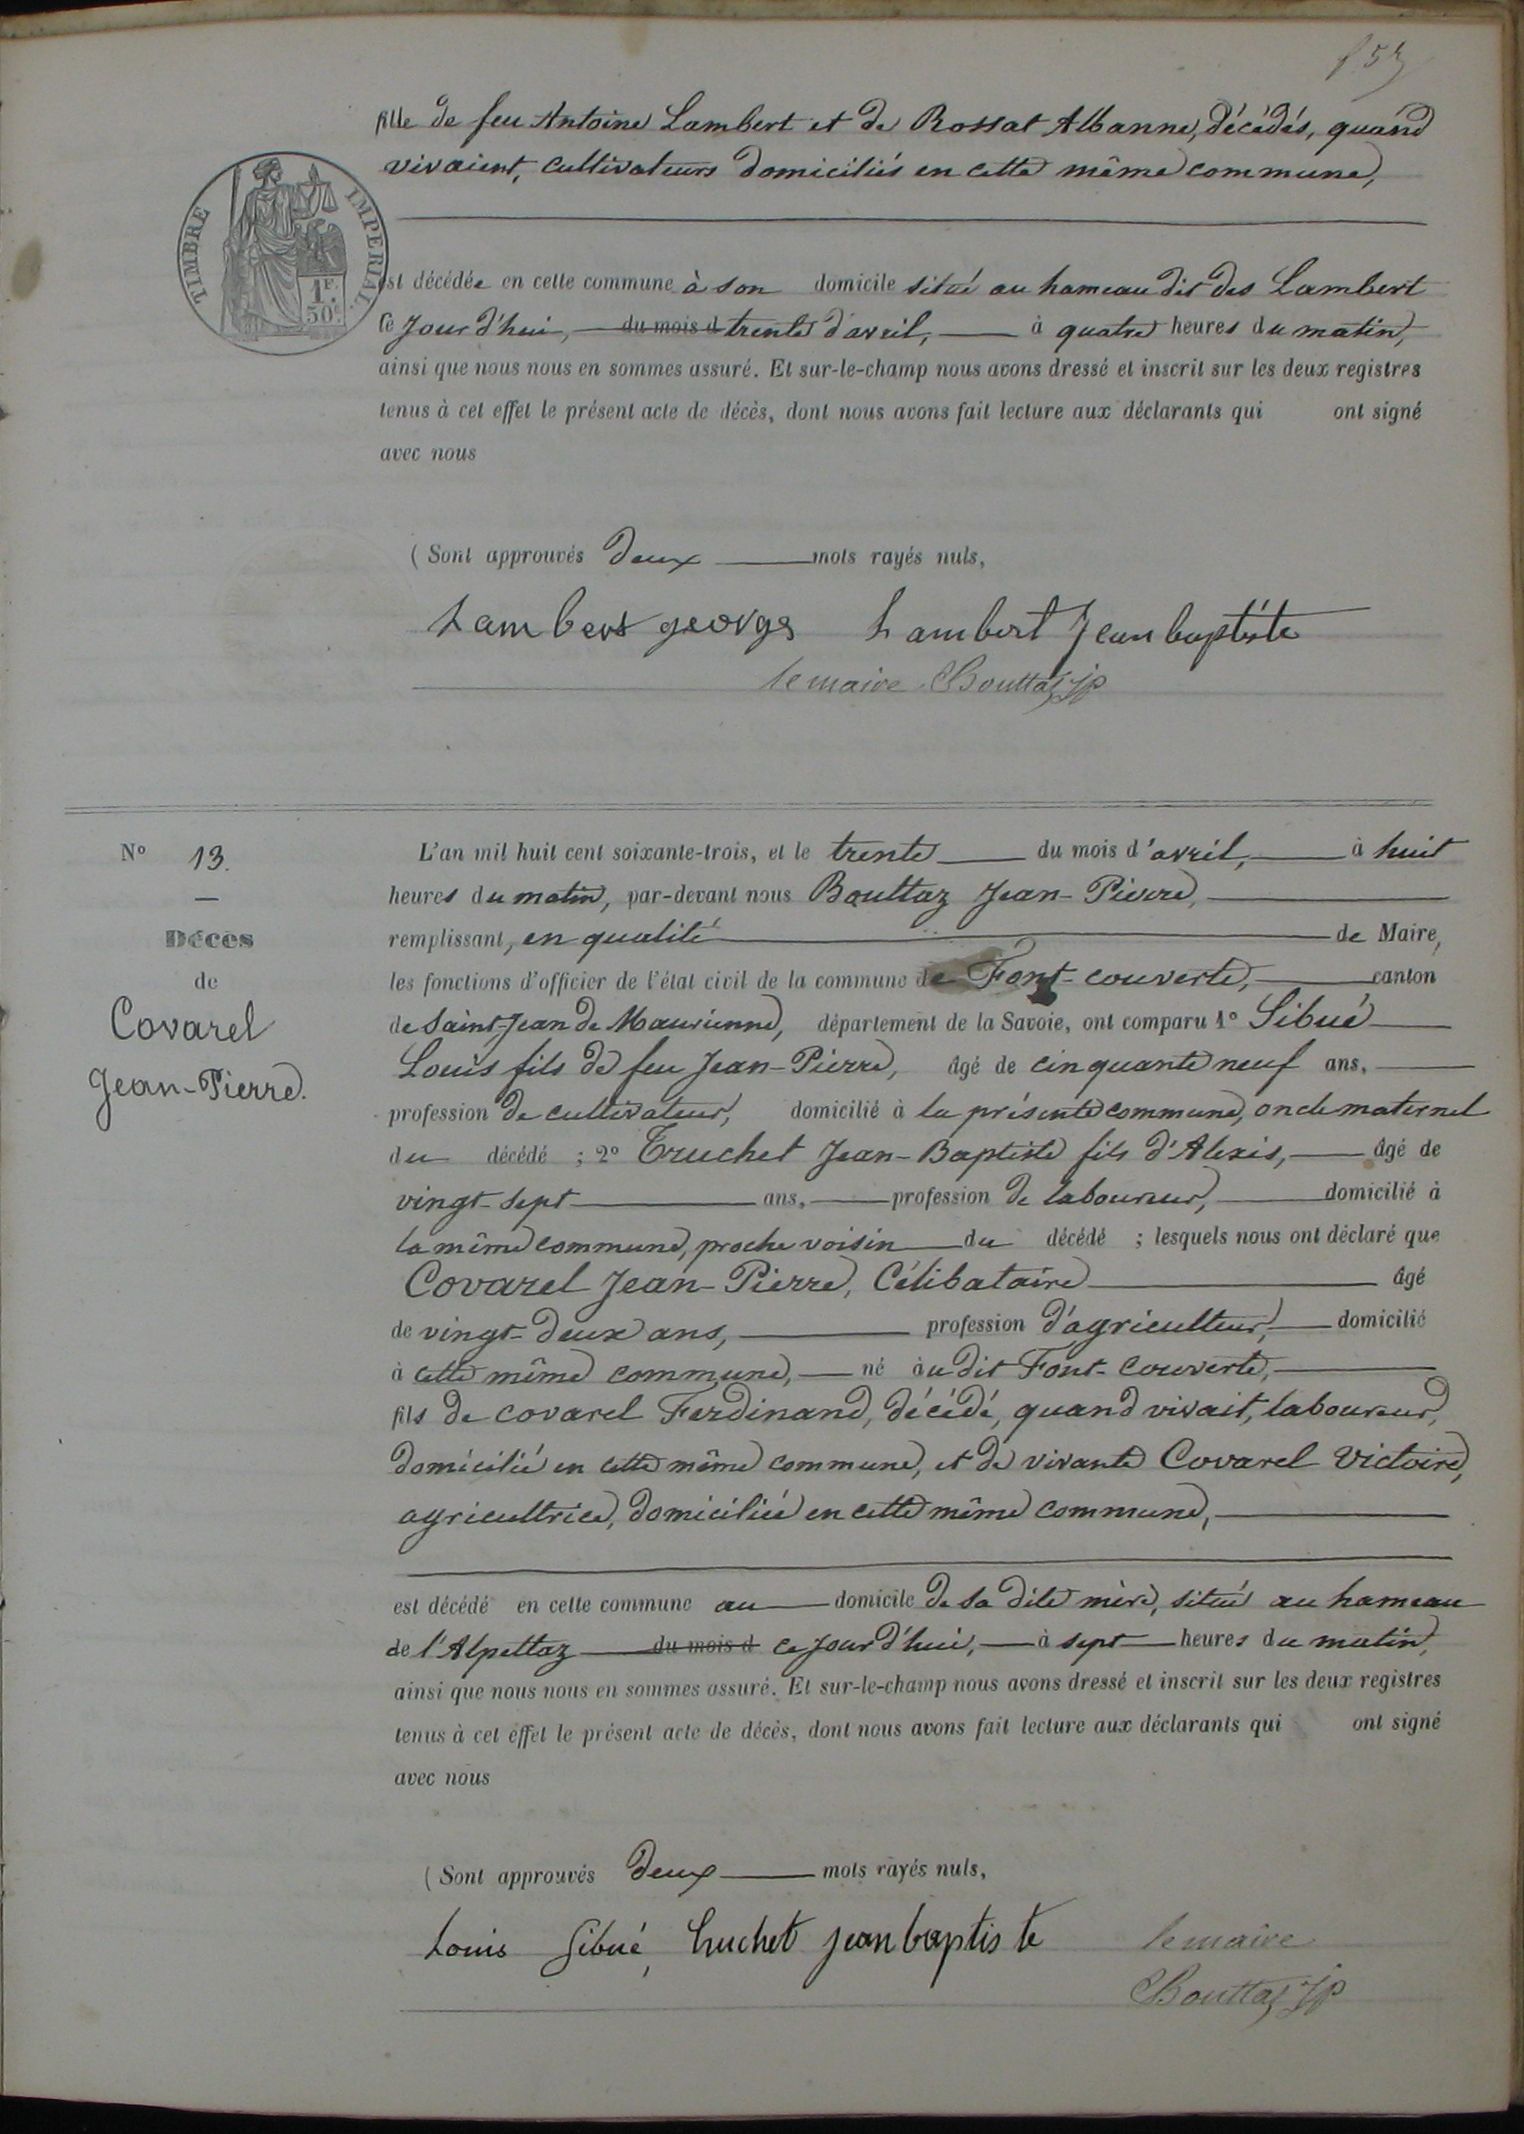 f. 53
fille de feu Antoine Lambert et de Rossat Albanne, décédés, quand
vivaient, cultivateurs domiciliés en cette même commune,
TIMBRE IMPERIAL
1F.
50c.
est décédée en cette commune à son domicile situé au hameau dit des Lambert
le Jour d'hui, du mois d trente d'avril, à quatre heures du matin,
ainsi que nous nous en sommes assuré. Et sur-le-champ nous avons dressé et inscrit sur les deux registres
tenus à cet effet le présent acte de décès, dont nous avons fait lecture aux déclarants qui ont signé
avec nous
(Sont approuvés deux mots rayés nuls,
Lambert georges Lambert Jean baptiste
le maire Bouttaz JP
N° 13.
Décès
de
Covarel
Jean-Pierre.
L'an mil huit cent soixante-trois, et le trente du mois d'avril, à huit
heures du matin, par-devant nous Bouttaz Jean-Pierre,
remplissant, en qualité de Maire,
les fonctions d'officier de l'état civil de la commune de Font-couverte, canton
de Saint-Jean de Maurienne, département de la Savoie, ont comparu 1° Sibué
Louis fils de feu Jean-Pierre, âgé de cinquante neuf ans,
profession de cultivateur, domicilié à la présente commune, oncle maternel
du décédé ; 2° Truchet Jean-Baptiste fils d'Alexis, âgé de
vingt-sept ans, profession de laboureur, domicilié à
la même commune, proche voisin du décédé ; lesquels nous ont déclaré que
Covarel Jean-Pierre, Célibataire âgé
de vingt-deux ans, profession d'agriculteur, domicilié
à cette même commune, né àu dit Font-Couverte,
fils de covarel Ferdinand, décédé, quand vivait, laboureur,
domicilié en cette même commune, et de vivante Covarel Victoire,
agricultrice, domiciliée en cette même commune,
est décédé en cette commune au domicile de sa dite mère, situé au hameau
de l'Alpettaz du mois d ce jour d'hui, à sept heures du matin,
ainsi que nous nous en sommes assuré. Et sur-le-champ nous avons dressé et inscrit sur les deux registres
tenus à cet effet le présent acte de décès, dont nous avons fait lecture aux déclarants qui ont signé
avec nous
(Sont approuvés deux mots rayés nuls,
Louis Sibué, truchet jean baptiste le maire
Bouttaz JP